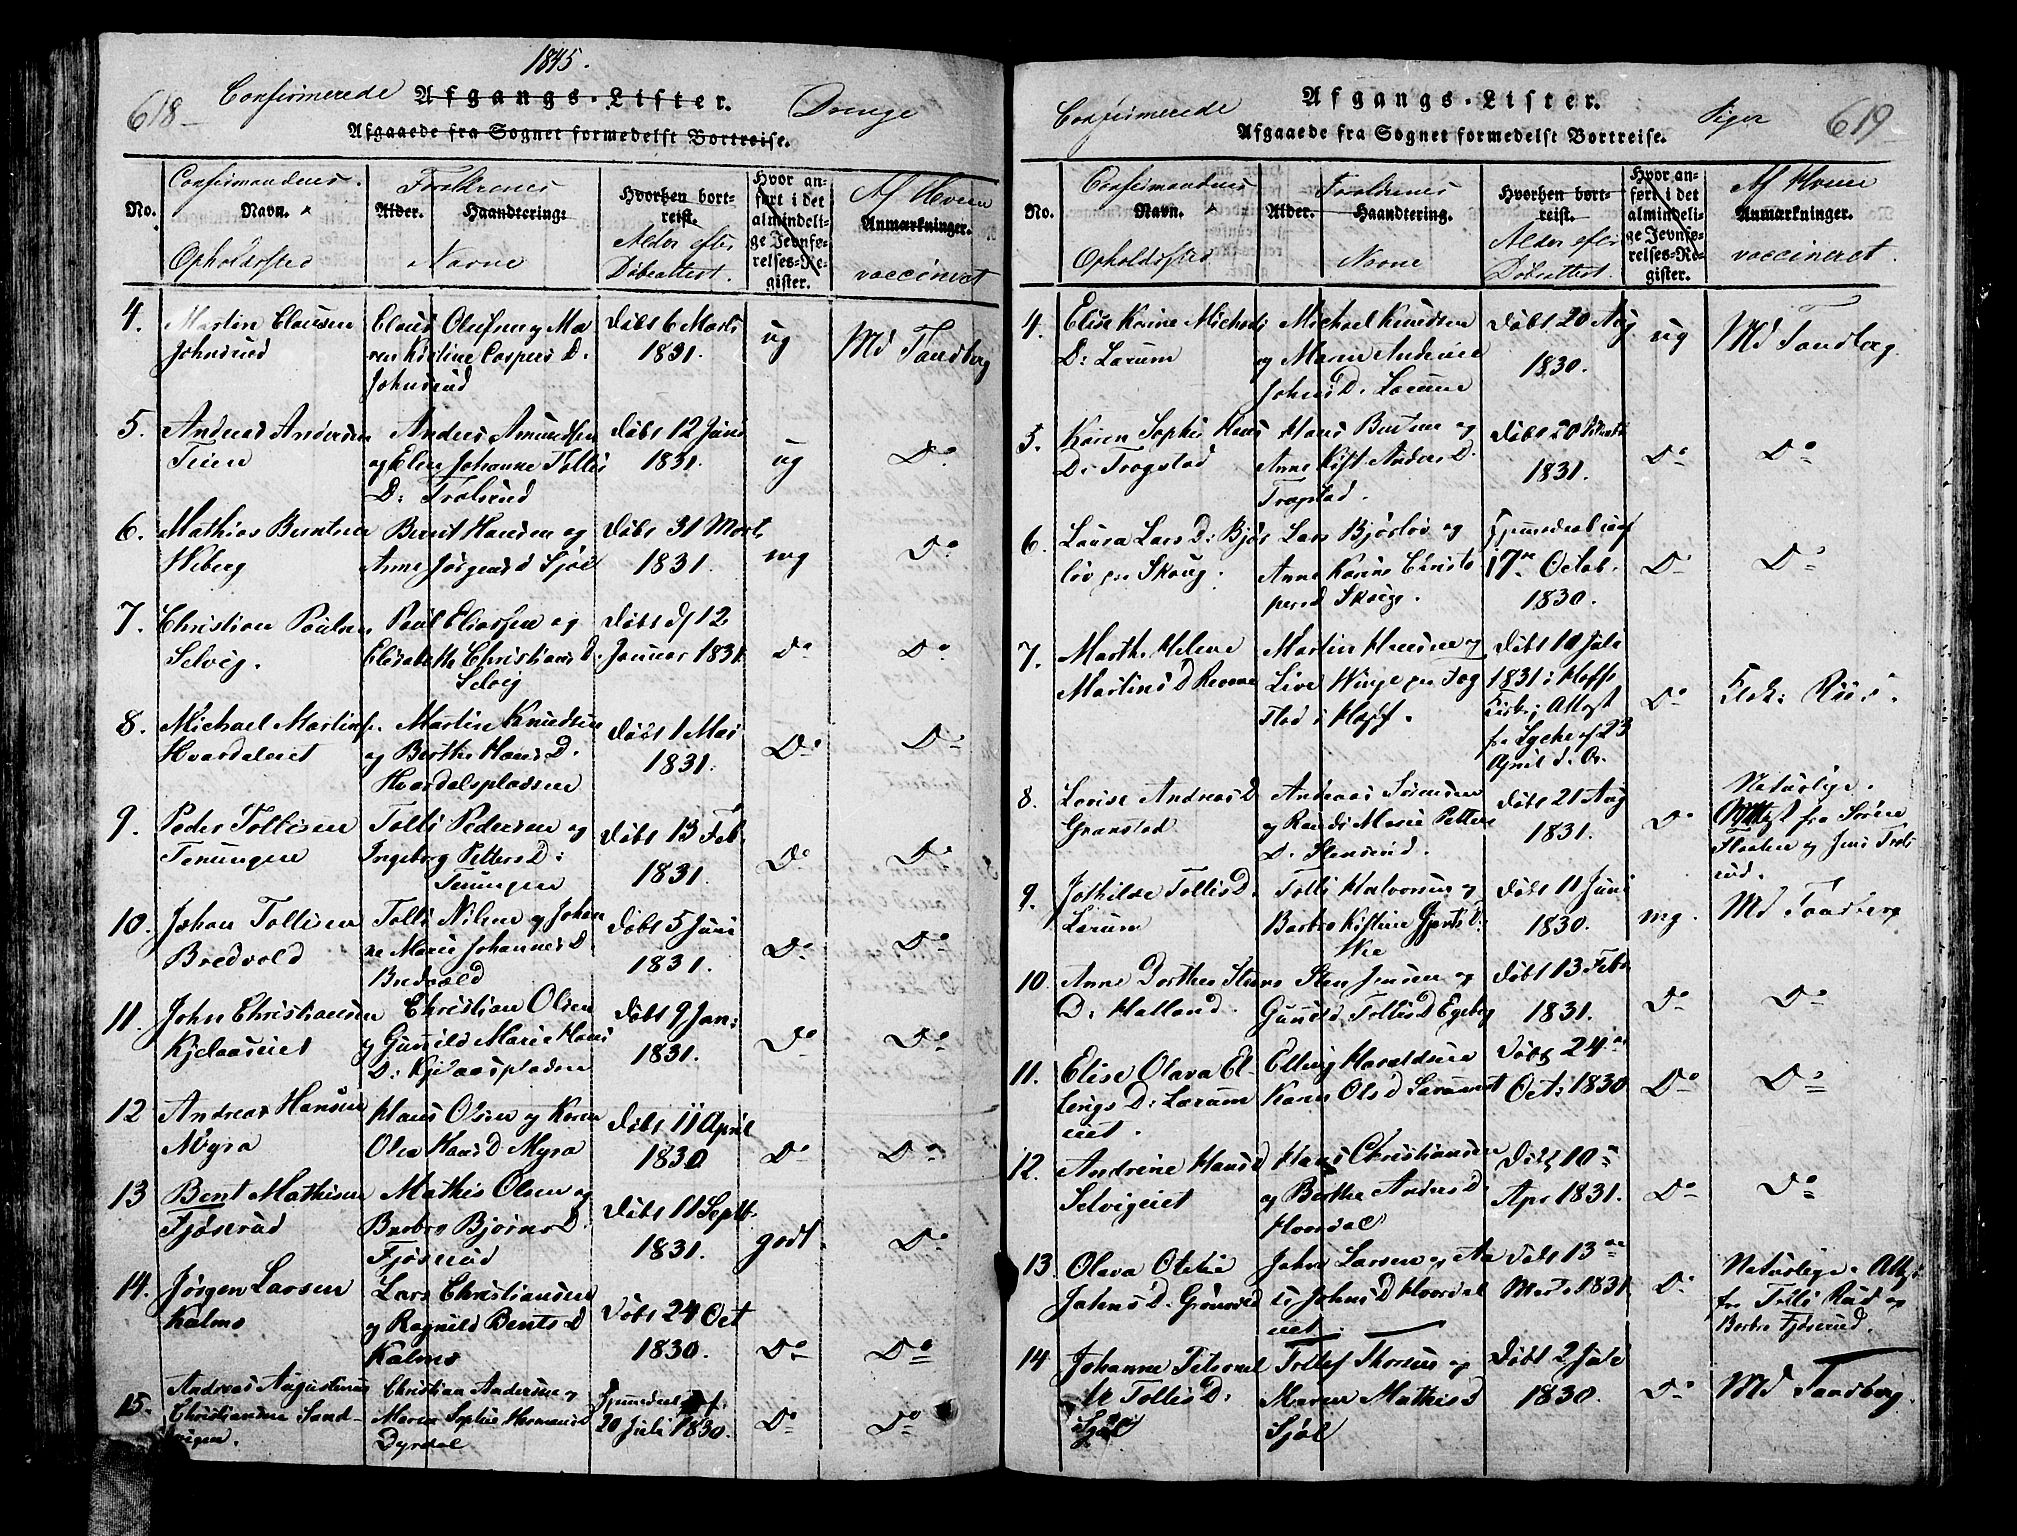 1845.
618
Confirmerede
Afgangs-Lister.
Drenge
Afgaaede fra Sognet formedelst Bortreise.
No.
Confirmandens
Navn.
Opholdssted
Forældrenes
Alder. Haandtering.
Navne
Hvorhen bort-
reist.
Alder efter
Døbeattest.
Hvor an-
ført i det
almindeli-
ge Jevnfø-
relses-Re-
gister.
Af Hvem
Anmærkninger.
vaccineret
4.
Martin Clausen
Johnsrud
Claus Olufsen og Ma
ren Kistine Caspers D.
Johnsrud
Døbt 6 Marts
1831.
ug
Md Tandberg
5.
Andreas Andersen
Teien
Anders Amundsen
og Elen Johanne Tollis
D:
Døbt 12 Juni
1831.
ug
Do
6.
Mathias Berntsen
Wiberg
Bernt Hansen og
Anne Jørgens d Sjøl
Døbt 31 Marts
1831.
mg
Do
7.
Christian Paulsen
Selvig.
Paul Eliassen og
Elisabeth Christians D.
Selvig
Døbt d. 12
Januar 1831.
Do
Do
8.
Michael Martins.
Hvardaleiet
Martin Knudsen
og Berthe Hans D.
Hvardalspladsen
Døbt 1 Mai
1831.
Do
Do
9.
Peder Tollisen
Teningen
Tolli Pedersen og
Ingeborg Petters D:
Teningen
Døbt 13 Feb.
1831.
Do
Do
10.
Johan Tollisen
Bredvold
Tolli Nilsen og Johan
ne Marie Johannes D.
Bredvold
Døbt 5 Juni
1831.
Do
Do
11.
John Christiansen
Kjelaaseiet
Christian Olsen
og Gunild Marie Hans
D: Kjelaaspladsen
Døbt 9 Jan:
1831.
Do
Do
12
Andreas Hansen
Myra
Hans Olsen og Karen
Olea Hans D Myra
Døbt 11 April
1830
Do
Do
13
Bent Mathisen
Fjøsrud
Mathis Olsen og
Barbro Bjørns D.
Fjøsrud
Døbt 11 Septb.
1831.
godt.
Do
14.
Jørgen Larsen
Kalmo
Lars Christiansen
og Ragnild Bents D
Kalmo
Døbt 24 Oct
1830.
Do
Do
15.
Andreas Augustinus
Christiansen Sand-
vigen.
Christian Andersen og
Maren Sophie Hermans D
Dyrdal
20 Juli 1830.
Do
Do
Confirmerede
Afgangs-Lister.
Piger
619
Afgaaede fra Sognet formedelst Bortreise.
No.
Confirmandens
Navn.
Opholdssted
Forældrenes
Alder. Haandtering.
Navne
Hvorhen bort-
reist.
Alder efter
Døbeattest.
Hvor an-
ført i det
almindeli-
ge Jevnfø-
relses-Re-
gister.
Af Hvem
Anmærkninger.
vaccineret.
4.
Elise Karine Michels
D: Lørum
Michael Knudsen
og Maren Andrine
Johns D. Lørum
Døbt 20 Aug
1830.
ug
Md Tandberg.
5.
Karen Sophie Hans
D: Trogstad
Hans og
Anne Kist Anders D.
Trogstad.
Døbt 20 Marts
1831.
Do
Do
6.
Laura Lars D: Bjør
løv Skoug.
Lars Bjørløv og
Anne Karine Christo
Skoug.
17de Octob.
1830.
Do
Do
7.
Marth. Helene
Martins D
Martin Hansen og
Live Winge Tog
stad i Hoff.
Døbt 10 Juli
1831 i Hoffs
Kirke, Attest
fra Lyche af 23
April d. A.
Do
8.
Lovise Andreas D
Granstad
Andreas Sørensen
og Randi Marie Petters
D. Stensrud.
Døbt 21 Aug
1831.
Do
Naturlige.
Attest fra Søren
og Jens
rud.
9.
Jothilde Tollis D.
Lørum
Tolli Halvorsen og
Barbro Kistine Gjerts D:
Skie
Døbt 11 Juni
1830.
mg.
Md Tandberg
10.
Anne Dorthea Stens
D: Halland.
Sten Jensen og
Gunild Tollis D Egeberg
Døbt 13 Feb.
1831.
Do
Do
11.
Elise Olava El-
lings D: Lørum
eiet.
Elling Haraldsen
Karen Ols d Lørumeiet
Døbt 24de
Oct: 1830
Do
Do
12.
Andrine Hans D
Selvigeiet
Hans Christiansen
og Berthe Anders D.
Hvardal
Døbt 10de
Apr 1831.
Do
Do
13
Olava Otelie
Johns D. Grønvold
eiet.
John Larsen og An
Johns D Hvardal
Døbt 13de
Marts 1831.
Do
Naturlige. Attest
fra Tolli Rud og
Barbro Fjøsrud.
14
Johanne
Tollis D:
Sjøl
Tollef Thorsen og
Maren Mathis D
Sjøl
Døbt 2 Juli
1830.
Do
Md Tandberg.